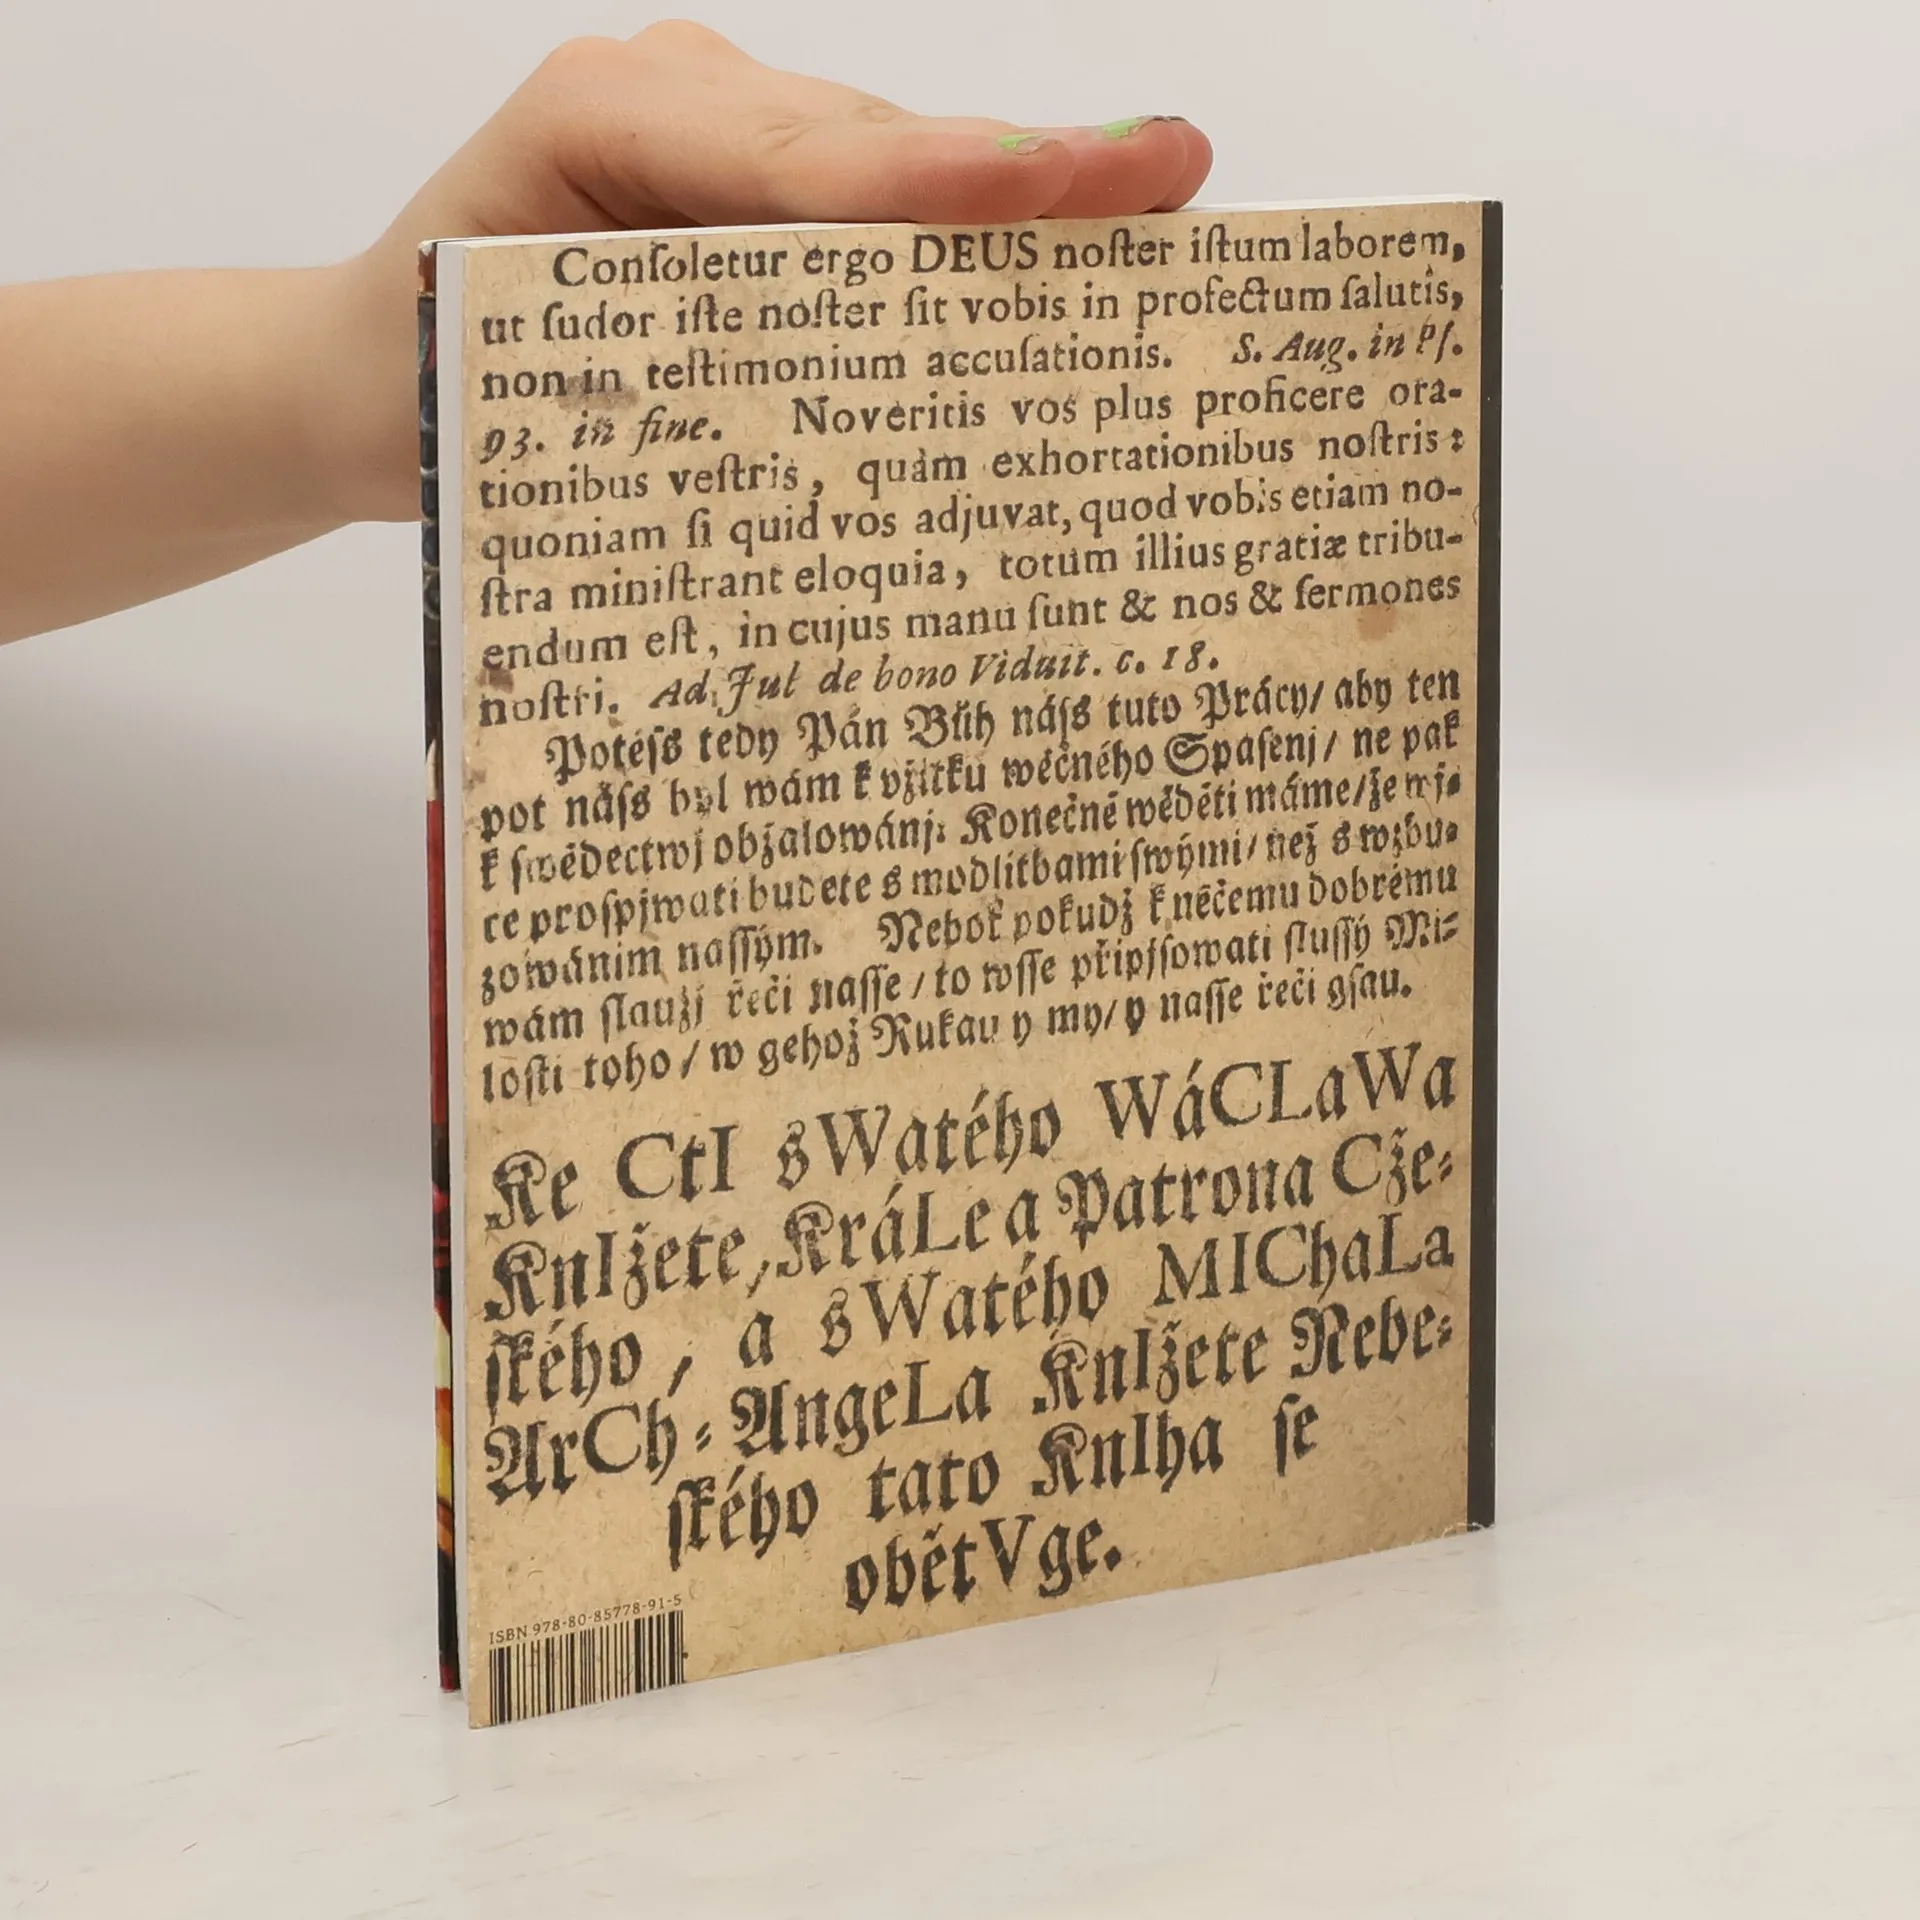 Conſoletur ergo DEUS noſter iſtum laborem,
ut ſudor iſte noſter ſit vobis in profectum ſalutis,
non in teſtimonium accuſationis. S. Aug. in Pſ.
93. in fine. Noveritis vos plus proficere ora-
tionibus veſtris, quàm exhortationibus noſtris:
quoniam ſi quid vos adjuvat, quod vobis etiam no-
ſtra miniſtrant eloquia, totum illius gratiæ tribu-
endum eſt, in cujus manu ſunt & nos & ſermones
noſtri. Ad Jul de bono Viduit. c. 18.
Potěſs tedy Pán Bůh náſs tuto Prácy/ aby ten
pot náſs byl wám k vžitku wěčného Spaſenj/ ne pak
k ſwědectwj obžalowánj: Konečně wěděti máme/ že wj-
ce proſpjwati budete s modlitbami ſwými/ než s wzbu-
zowánim naſſým. Neboť pokudž k něčemu dobrému
wám ſlaužj řeči naſſe/ to wſſe připjſowati ſluſſý Mi-
loſti toho/ w gehož Rukau y my/ y naſſe řeči gſau.
Ke CtI sWatého WáCLaWa
KnIžete, KráLe a Patrona Cže-
ſkého, a sWatého MIChaLa
ArCh-AngeLa KnIžete Nebe-
ſkého tato KnIha ſe
obětVge.
ISBN 978-80-85778-91-5